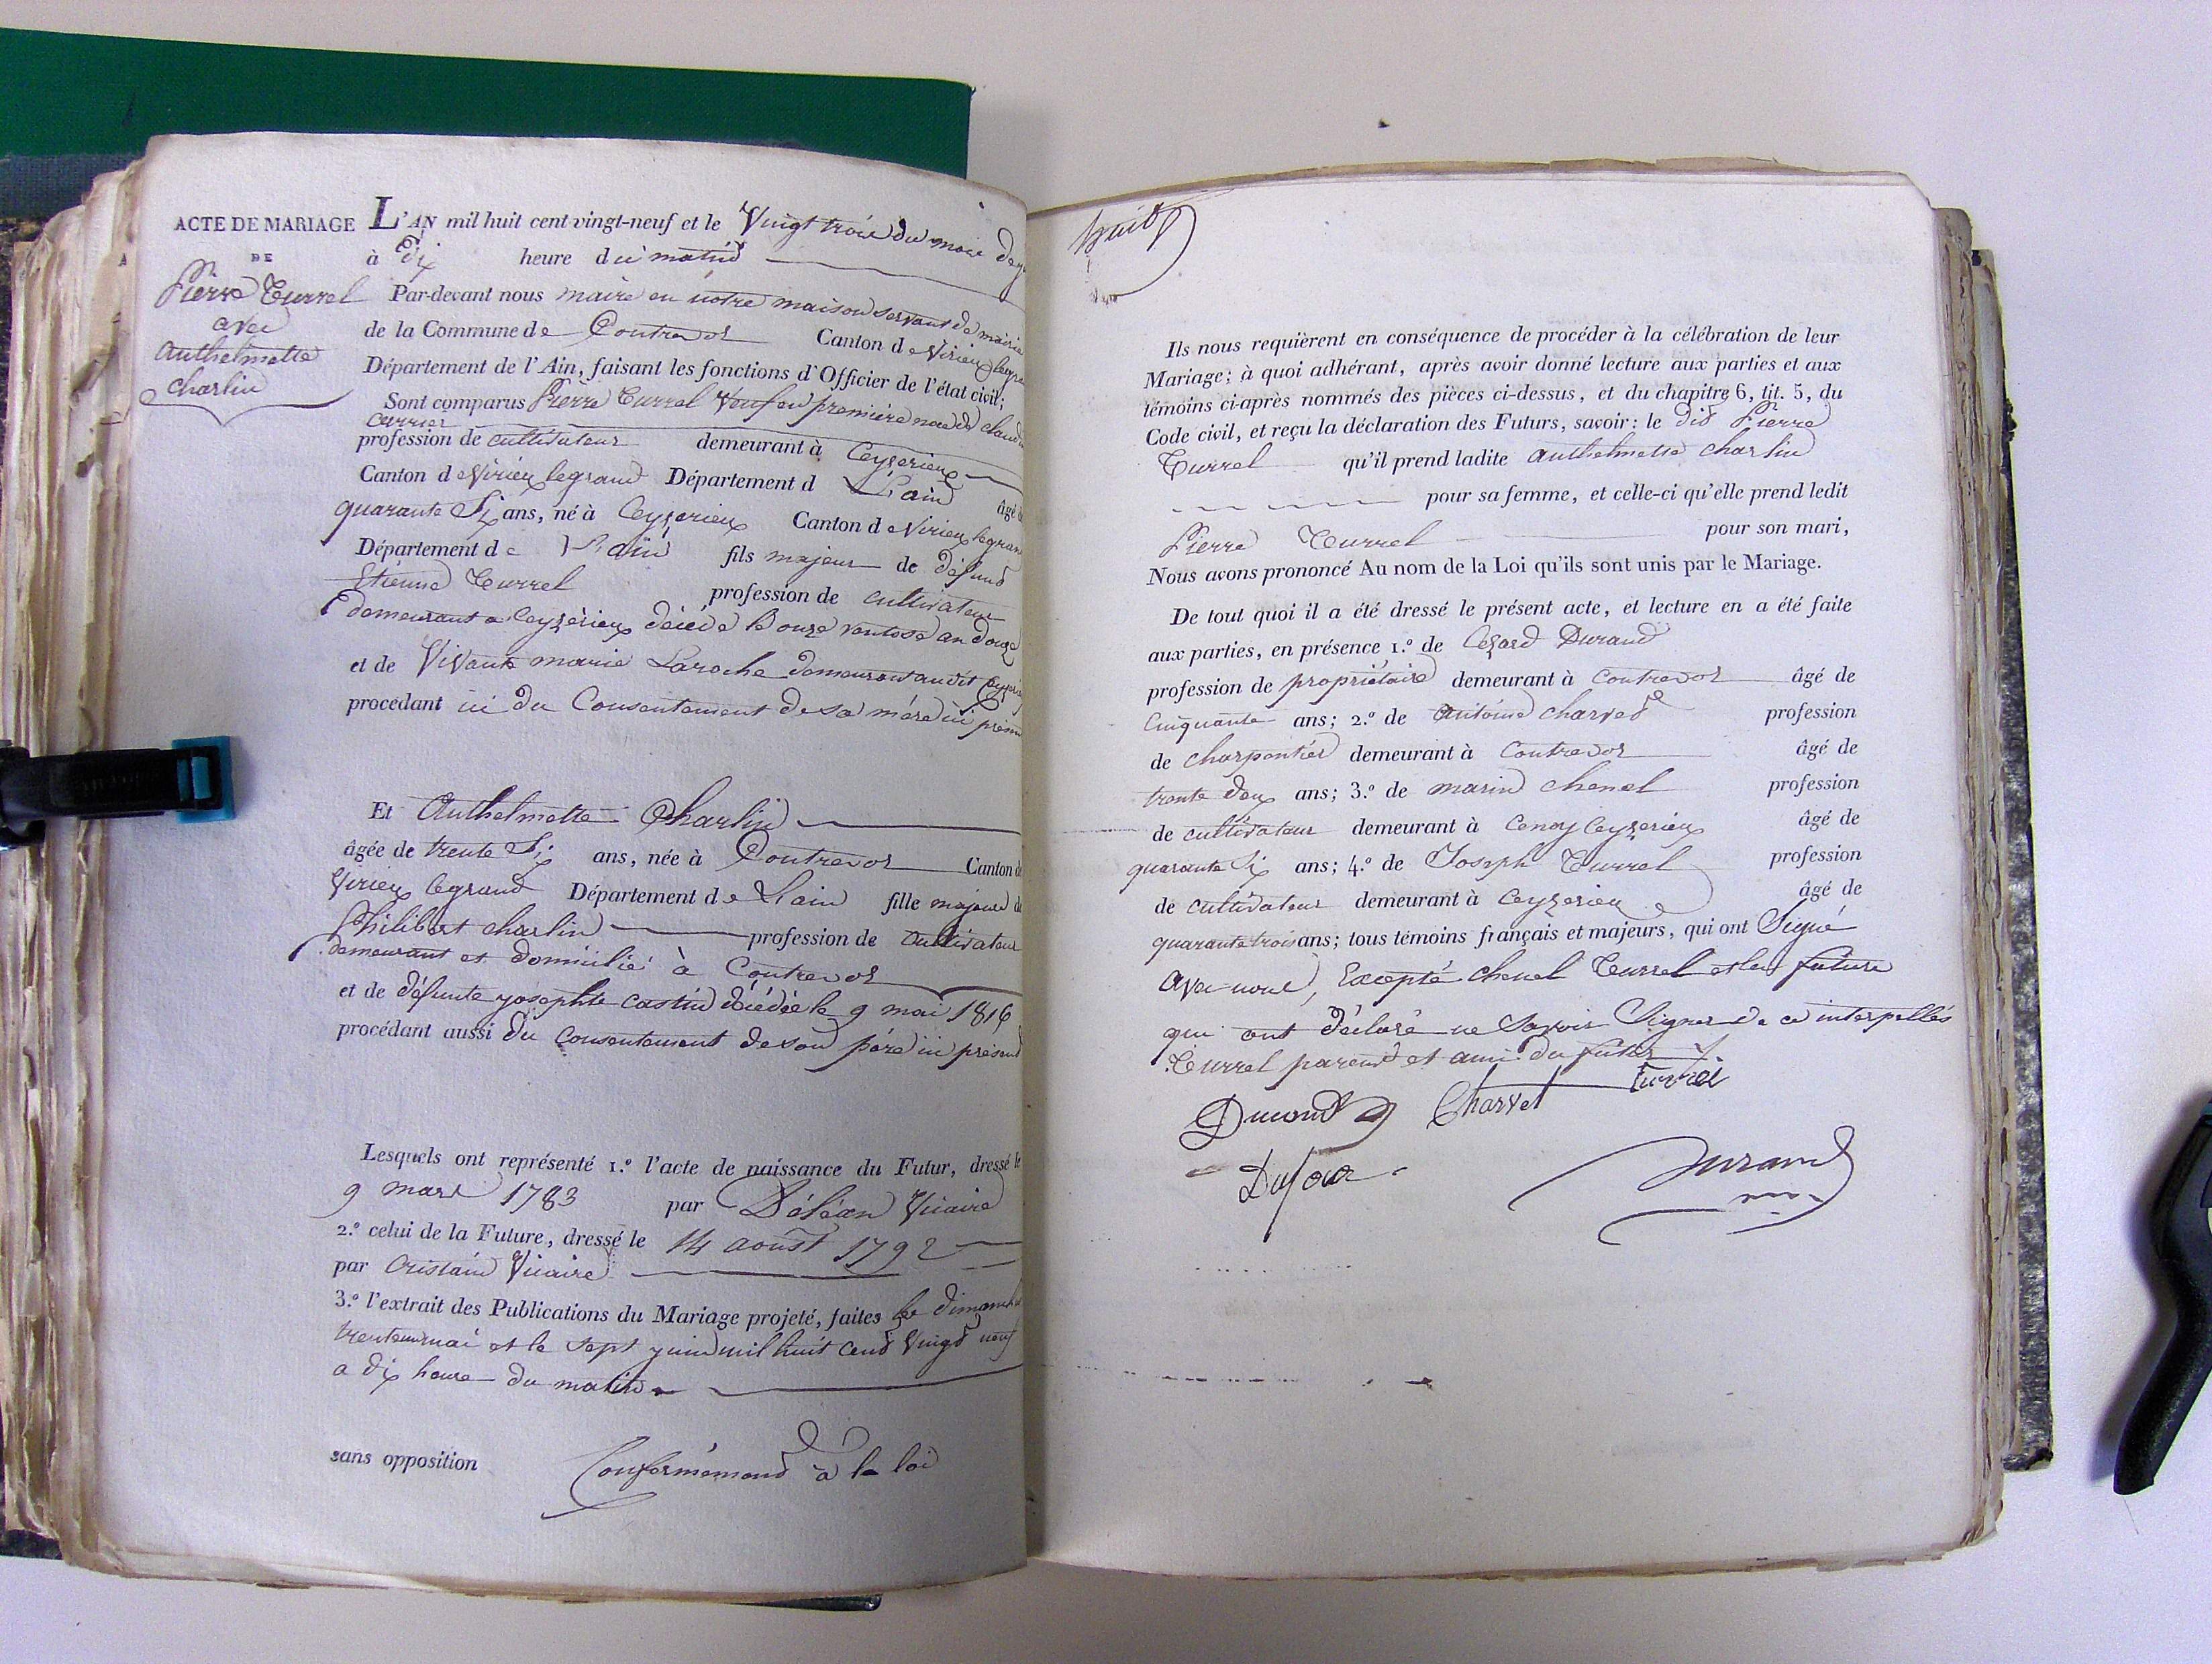 ACTE DE MARIAGE
DE
Pierre Turrel
avec
Anthelmette
charlin
L'AN mil huit cent vingt-neuf et le Vingt trois du mois de
à dix heure du matin
Par-devant nous maire en notre maison servant de mairie
de la Commune de Contrevos Canton de Virieu legra
Département de l'Ain, faisant les fonctions d'Officier de l'état civil;
Sont comparus Pierre Turrel Veuf en première noce de claud
carrier
profession de cultivateur demeurant à Ceyzerieu
Canton de Virieux legrand Département d L'ain âgé d
quarante Six ans, né à Ceyzerieux Canton de Virieux legran
Département de L'ain fils majeur de défund
Etienne Turrel profession de cultivateur
demeurant a Ceyzèrieux décédé le onze ventose an douze
et de Vivant marie Laroche demeurant audit Ceyzerie
procédant ici du Consentement de sa mére ici présen
Et Anthelmette Charlin
âgée de trente Six ans, née à Contrevos Canton de
Virieux legrand Département de L'ain fille majeure de
Philibert charlin profession de cultivateur
demeurant et domicilié à Contrevos
et de défunte yosephte castin décédée le 9 mai 1816
procédant aussi du Consentement de son pére ici présent
Lesquels ont représenté 1.º l'acte de naissance du Futur, dressé le
9 mars 1783 par Déléan Vicaire
2.º celui de la Future, dressé le 14 aoust 1792
par Cristain Vicaire
3.º l'extrait des Publications du Mariage projeté, faites le dimanche
trente un mai et le sept juin mil huit cend Vingd neuf
a dix heure du matin
sans opposition Conformémend à la loi
huit
Ils nous requièrent en conséquence de procéder à la célébration de leur
Mariage; à quoi adhérant, après avoir donné lecture aux parties et aux
témoins ci-après nommés des pièces ci-dessus, et du chapitre 6, tit. 5, du
Code civil, et reçu la déclaration des Futurs, savoir: le dit Pierre
Turrel qu'il prend ladite anthelmette charlin
pour sa femme, et celle-ci qu'elle prend ledit
Pierre Turrel pour son mari,
Nous avons prononcé Au nom de la Loi qu'ils sont unis par le Mariage.
De tout quoi il a été dressé le présent acte, et lecture en a été faite
aux parties, en présence 1.º de Cezard Durand
profession de propriétaire demeurant à Contrevos âgé de
Cinquante ans; 2.º de Antoine charved profession
de charpentier demeurant à Contrevos âgé de
trente deux ans; 3.º de marin chenel profession
de cultivateur demeurant à Ceyzerieux âgé de
quarante Six ans; 4.º de Joseph Turrel profession
de cultivateur demeurant à Ceyzerieu âgé de
quarante trois ans; tous témoins français et majeurs, qui ont Signé
avec nous, Excepté chenel Turrel et la future
qui ont déclaré ne Savoir Signer de ce interpellés
Turrel parend et ami du futur
Charvet Turrel
Dufour Durand